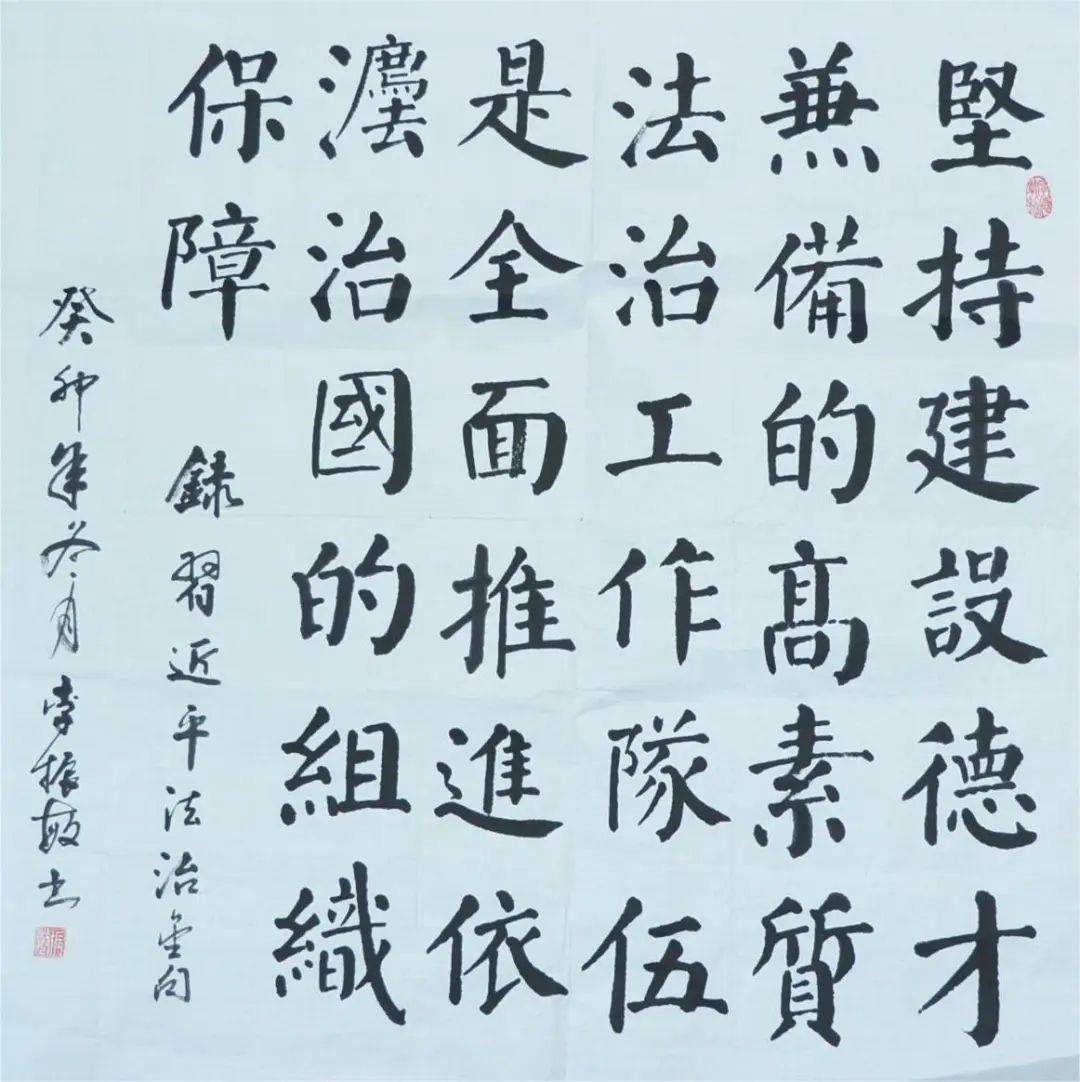 堅持建設德才
兼備的高素質
法治工作隊伍
是全面推進依
灋治國的組織
保障
錄習近平法治金句
癸卯年冬月李振敏书